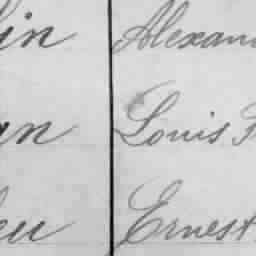 in Alexan
an Louis F
eu Ernest